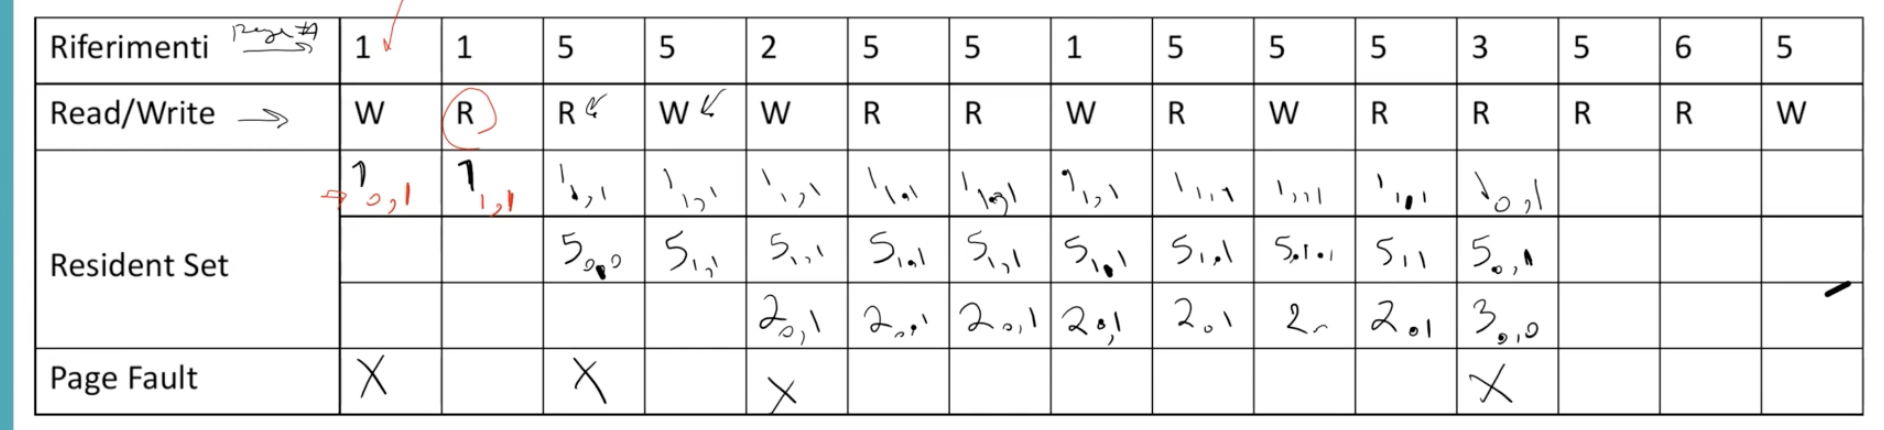 Riferimenti page # 1 1 5 5 2 5 5 1 5 5 5 3 5 6 5
Read/Write W R R W W R R W R W R R R R W
1 0,1 1 1,1 1 1,1 1 1,1 1 1,1 1 1,1 1 1,1 1 1,1 1 1,1 1 1,1 1 1,1 1 0,1
Resident Set 5 0,0 5 1,1 5 1,1 5 1,1 5 1,1 5 1,1 5 1,1 5 1,1 5 1 1 5 0,1
2 0,1 2 0,1 2 0,1 2 0,1 2 0 1 2 2 0 1 3 0,0
Page Fault X X X X